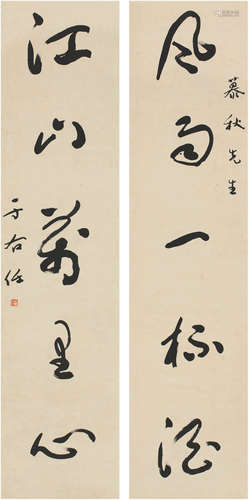 慕秋先生
风雨一杯酒
江山万里心
于右任